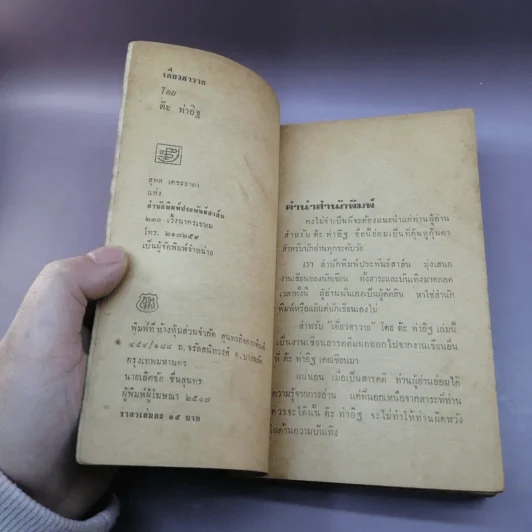 เดี่ยวฮาวาย
โดย
ต๊ะ ท่าอิฐ
สุพล เตชะธาดา
แห่ง
สำนักพิมพ์ประพันธ์สาส์น
๒๓๐ เวิ้งนาครเขษม
โทร. ๒๑๘๒๕๑
เป็นผู้จัดพิมพ์จำหน่าย
พิมพ์ที่ ห้างหุ้นส่วนจำกัด
๔๕๔/๑๘๔ ถ. จรัลสนิทวงศ์
กรุงเทพมหานคร
นายเลิศชัย ชื่นสุนทร
ผู้พิมพ์ผู้โฆษณา ๒๕๑๗
ราคาเล่มละ ๑๕ บาท
คำนำสำนักพิมพ์
คงไม่จำเป็นที่จะต้องแนะนำแก่ท่านผู้อ่าน
สำหรับ ต๊ะ ท่าอิฐ ชื่อนี้ย่อมเป็นที่คุ้นหูคุ้นตา
สำหรับนักอ่านทุกระดับวัย
เรา สำนักพิมพ์ประพันธ์สาส์น มุ่งเสนอ
งานเขียนของนักเขียน ทั้งสาระและบันเทิงมาตลอด
เวลาทั้งนี้ ผู้อ่านนั่นเองเป็นผู้ตัดสิน หาใช่สำนัก
พิมพ์หรือแม้แต่นักเขียนเองไม่
สำหรับ "เดี่ยวฮาวาย" โดย ต๊ะ ท่าอิฐ เล่มนี้
เป็นงานเขียนสารคดีแนบออกไปจากงานเขียนอื่น
ที่ ต๊ะ ท่าอิฐ เคยเขียนมา
แน่นอน เมื่อเป็นสารคดี ท่านผู้อ่านย่อมได้
ความรู้จากการอ่าน แต่ที่นอกเหนือจากสาระที่ท่าน
ควรจะได้นั้น ต๊ะ ท่าอิฐ จะไม่ทำให้ท่านผิดหวัง
ในด้านความบันเทิง